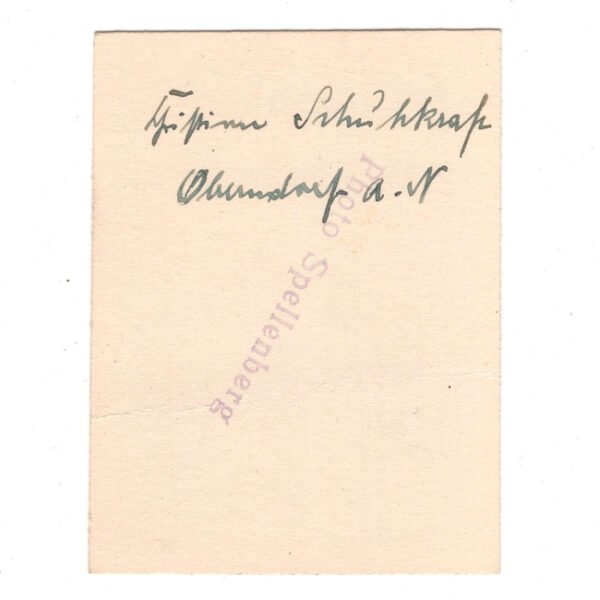 Christine Schuhkraft
Oberndorf a. N
Photo Spellenberg